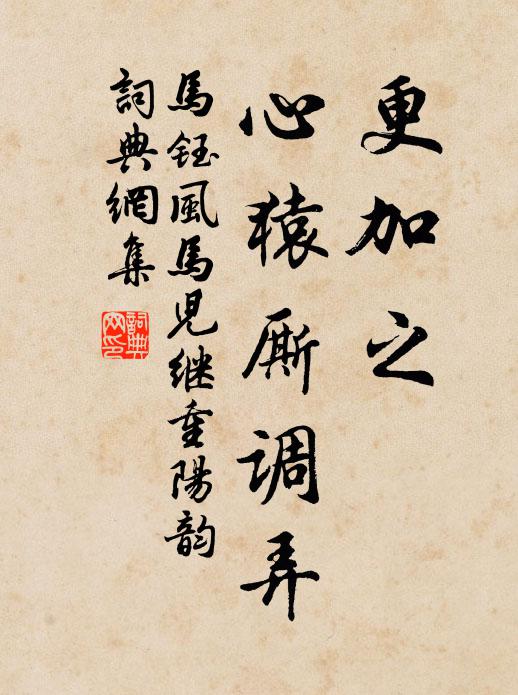 更加之
心猿厮调弄
馬鈺風馬兒继重陽韵
詞典網集
詞典
网印